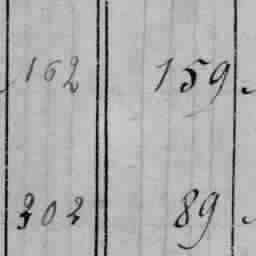 162 159
302 89